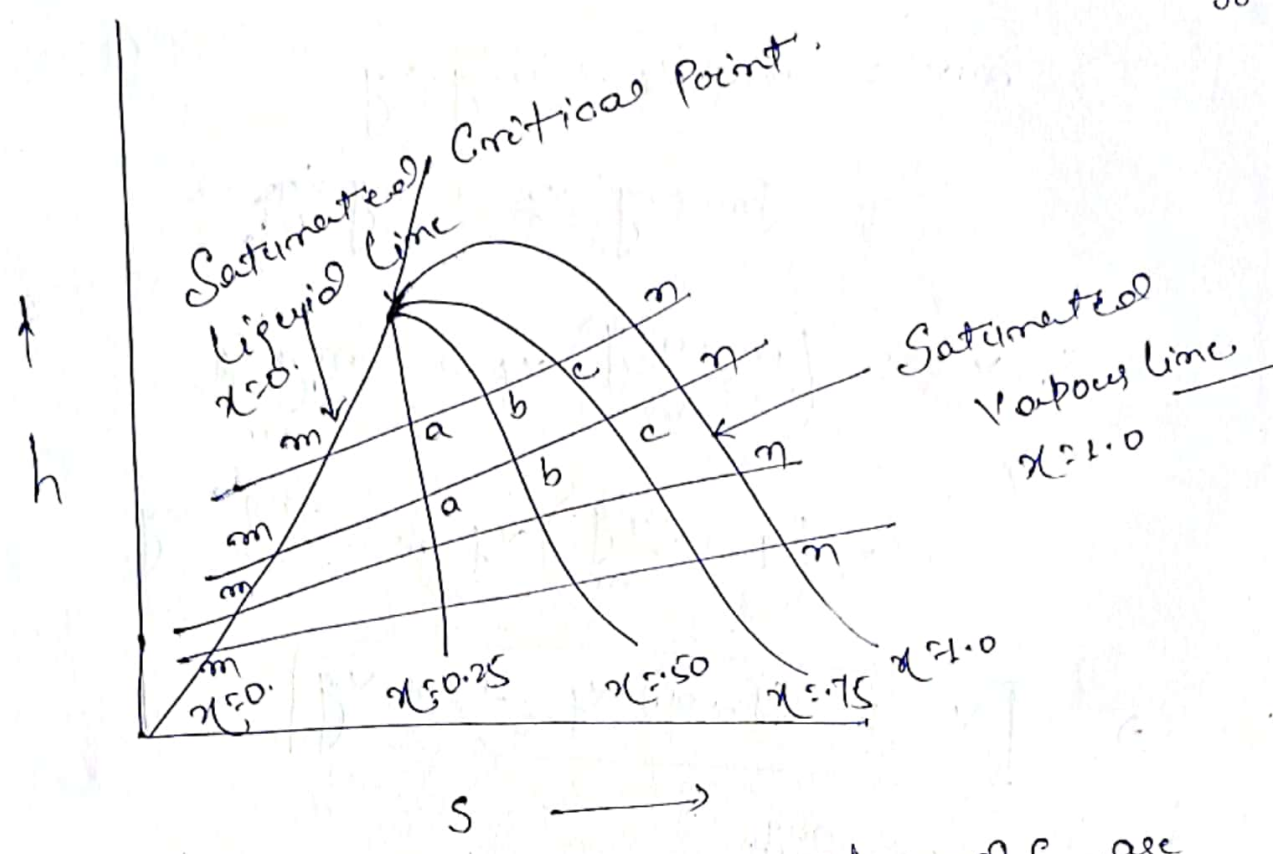 Critical Point.
Saturated
liquid line
x=0.
Saturated
Vapour line
x=1.0
h
m
m
m
m
a
a
b
b
c
c
n
n
n
n
x=0.
x=0.25
x=.50
x=.75
x=1.0
S
are